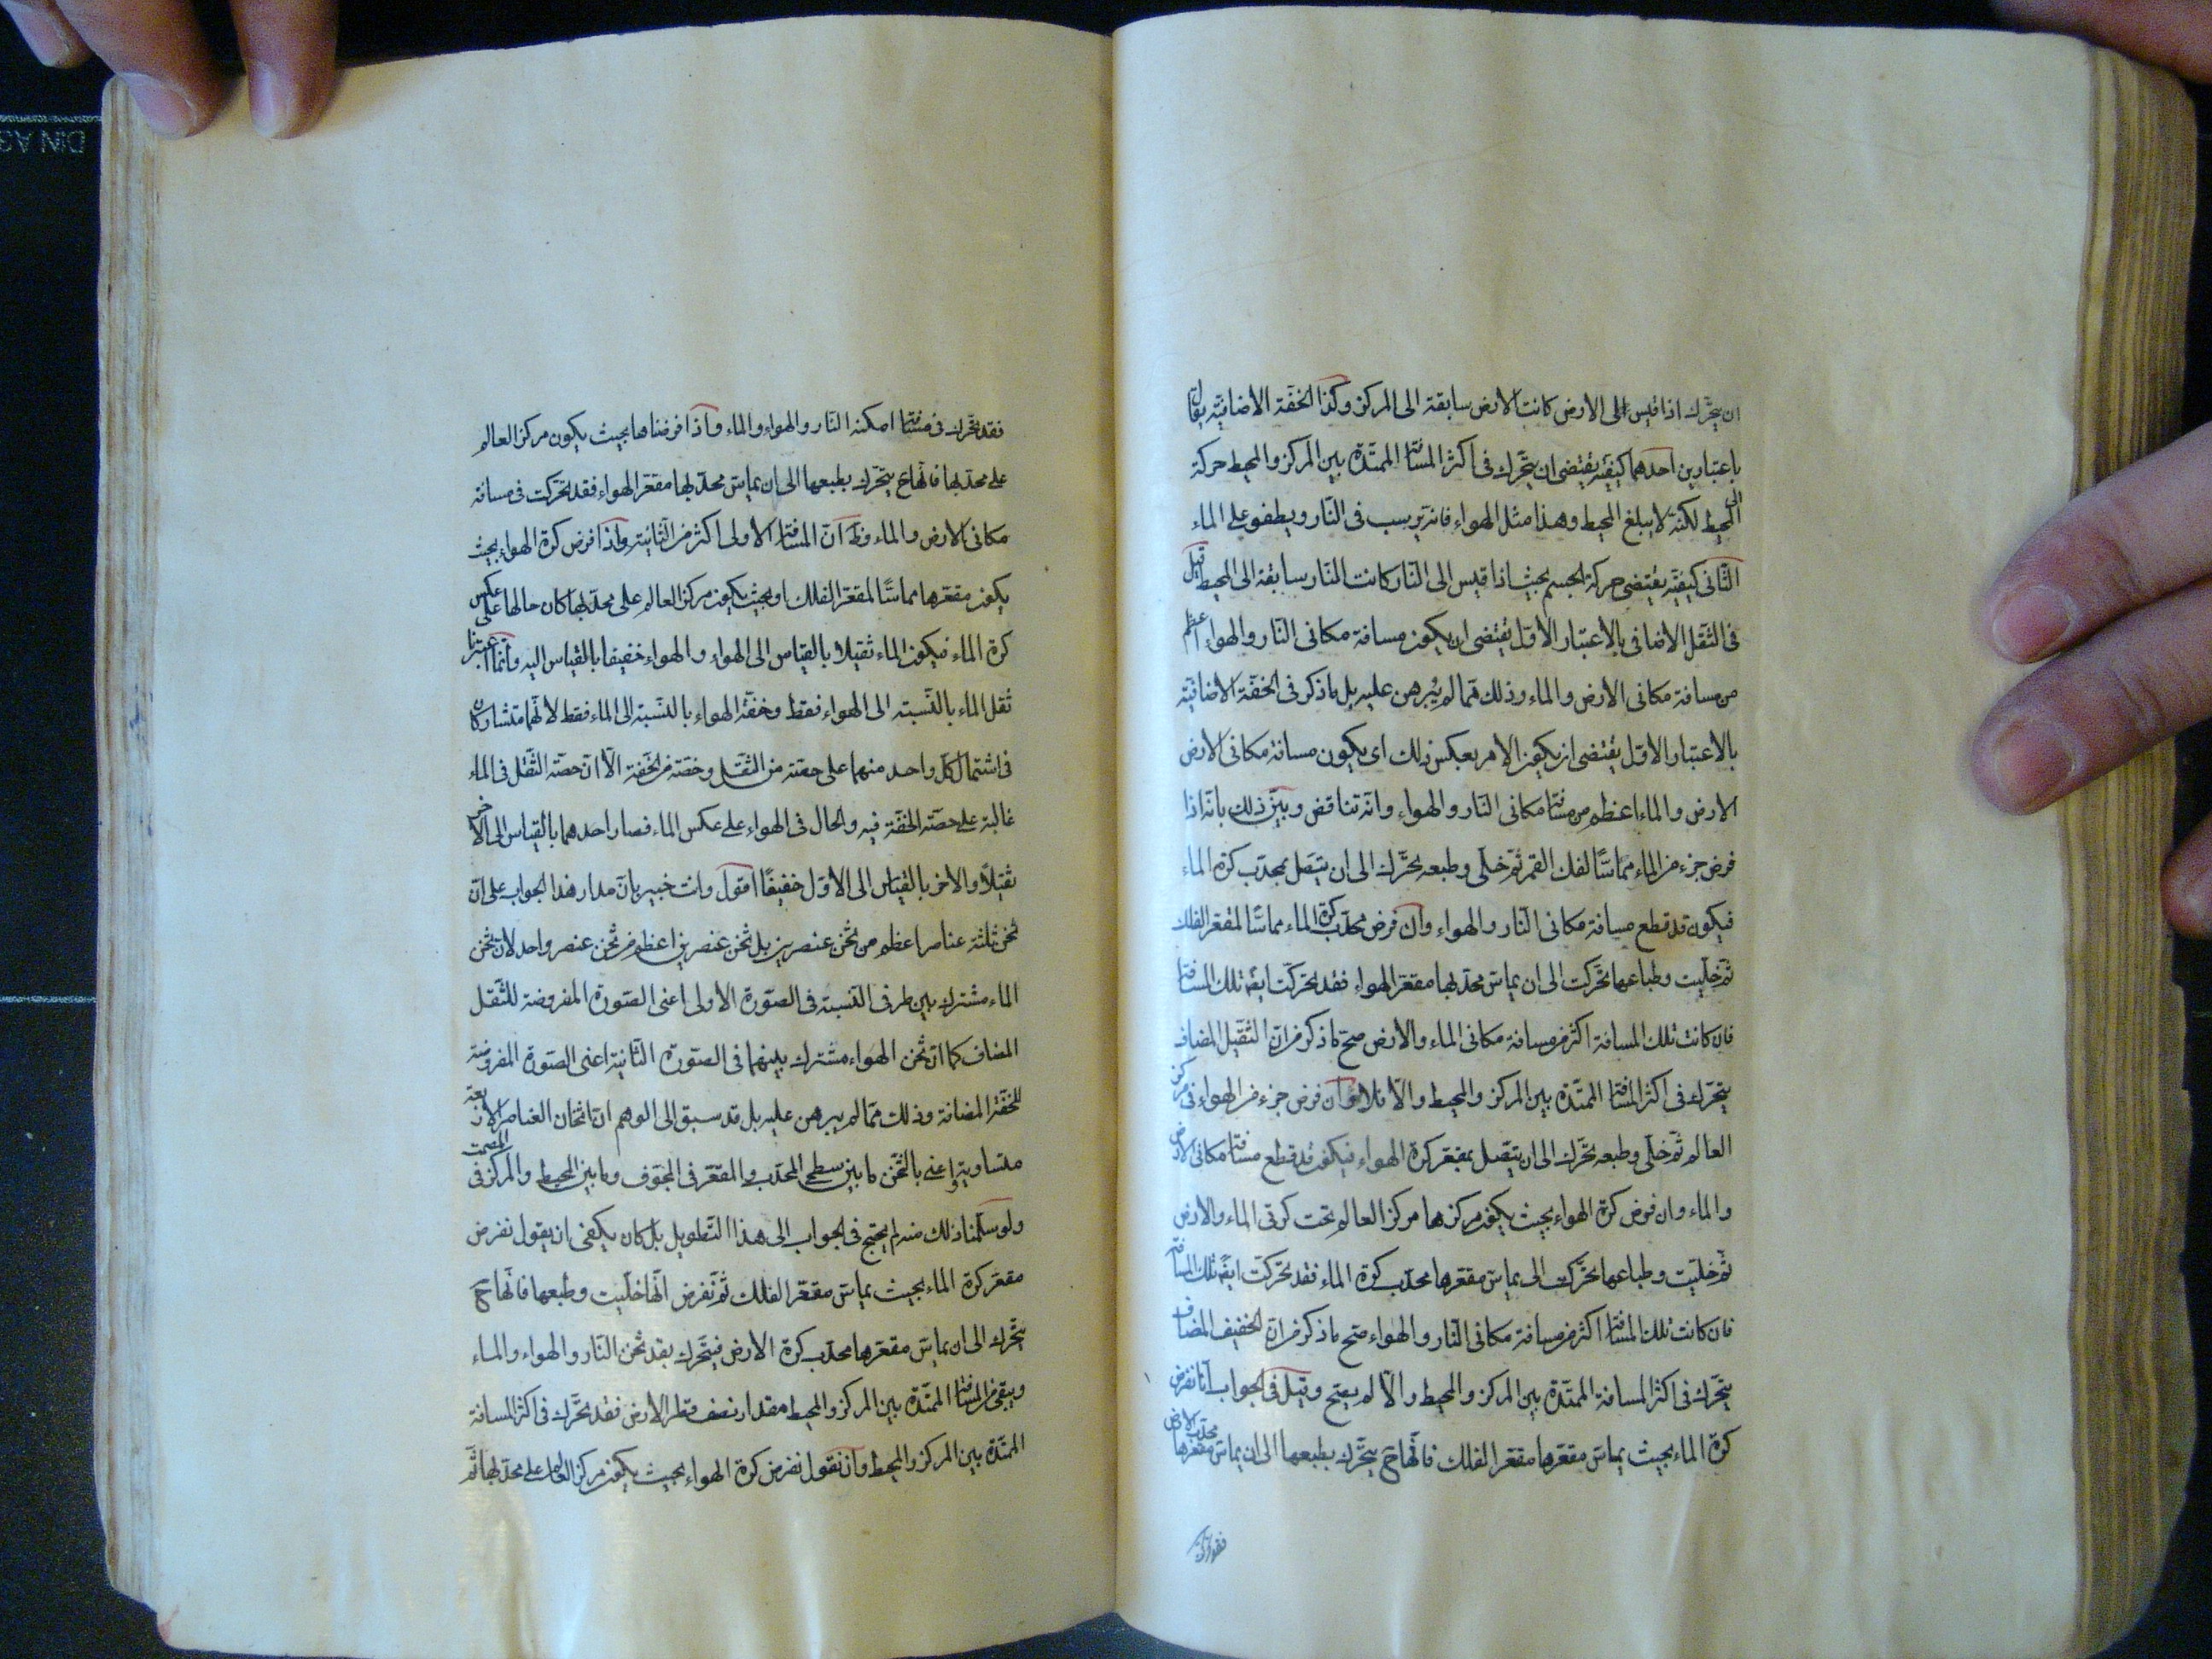 ان يتحرك اذا قيس الى الارض كانت الارض سابقة الى المركز وكذا الخفة الاضافية يقال
باعتبارين احدهما كيفية يقتضى ان يتحرك فى اكثر المسافة الممتدة بين المركز والمحيط حركة
الى المحيط لكنه لا يبلغ المحيط وهذا مثل الهواء فانه يرسب فى النار ويطفو على الماء
الثانى كيفية يقتضى حركة الجسم بحيث اذا قيس الى النار كانت النار سابقة الى المحيط قيل
فى الثقل الاضافى بالاعتبار الاول يقتضى ان يكون مسافة مكانى النار والهواء اعظم
من مسافة مكانى الارض والماء وذلك مما لم يبرهن عليه بل ما ذكر فى الخفة الاضافية
بالاعتبار الاول يقتضى ان يكون الامر بعكس ذلك اى يكون مسافة مكانى الارض
الارض والماء اعظم من مسافة مكانى النار والهواء وانه تناقض وبين ذلك بانه اذا
فرض جزء من الماء مماسا لفلك القمر ثم خلى وطبعه تحرك الى ان يتصل بمحدب كرة الماء
فيكون قد قطع مسافة مكانى النار والهواء وان فرض محدب كرة الماء مماسا لمقعر الفلك
ثم خليت وطباعها تحركت الى ان يماس محدبها مقعر الهواء فقد تحركت ايضا تلك المسافة
فان كانت تلك المسافة اكثر من مسافة مكانى الماء والارض صح ما ذكر من ان الثقيل المضاف
يتحرك فى اكثر المسافة الممتدة بين المركز والمحيط والا فلا وان فرض جزء من الهواء فى مركز
العالم ثم خلى وطبعه تحرك الى ان يتصل بمقعر كرة الهواء فيكون قد قطع مسافة مكانى الارض
والماء وان فرض كرة الهواء بحيث يكون مركزها مركز العالم تحت كرتى الماء والارض
ثم خليت وطباعها تحركت الى يماس مقعرها محدب كرة الماء فقد تحركت ايضا تلك المسافة
فان كانت تلك المسافة اكثر من مسافة مكانى النار والهواء صح ما ذكر من ان الخفيف المضاف
يتحرك فى اكثر المسافة الممتدة بين المركز والمحيط والا لم يصح وقيل فى الجواب انا نفرض
كرة الماء بحيث يماس مقعرها مقعر الفلك فانها ح يتحرك بطبعها الى ان يماس مقعرها محدب الارض
فقد تحرك فى مسافة امكنة النار والهواء والماء واذا فرضناها بحيث يكون مركز العالم
على محدبها فانها ح يتحرك بطبعها الى ان يماس محدبها مقعر الهواء فقد تحركت فى مسافة
مكانى الارض والماء وظ ان المسافة الاولى اكثر من الثانية واذا فرض كرة الهواء بحيث
يكون مقعرها مماسا لمقعر الفلك او بحيث يكون مركز العالم على محدبها كان حالها على عكس
كرة الماء فيكون الماء ثقيلا بالقياس الى الهواء والهواء خفيفا بالقياس اليه وانما اعتبرنا
ثقل الماء بالنسبة الى الهواء فقط وخفة الهواء بالنسبة الى الماء فقط لانهما متشاركان
فى اشتمال كل واحد منهما على حصة من الثقل وحصة من الخفة الا ان حصة الثقل فى الماء
غالبة على حصة الخفة فيه والحال فى الهواء على عكس الماء فصار احدهما بالقياس الى الاخر
ثقيلا والاخر بالقياس الى الاول خفيفا اقول وانت خبير بان مدار هذا الجواب على ان
ثخن ثلثة عناصر اعظم من ثخن عنصرين بل ثخن عنصرين اعظم من ثخن عنصر واحد لان ثخن
الماء مشترك بين طرفى النسبة فى الصورة الاولى اعنى الصورة المفروضة للثقل
المضاف كما ان ثخن الهواء مشترك بينهما فى الصورة الثانية اعنى الصورة المفروضة
للخفة المضافة وذلك مما لم يبرهن عليه بل قد سبق الى الوهم ان اثخان العناصر الاربعة
متساوية واعنى بالثخن ما بين سطحى المحدب والمقعر فى المجوف وما بين المحيط والمركز فى المصمت
ولو سلمنا ذلك منه لم يحتج فى الجواب الى هذا التطويل بل كان يكفى ان يقول نفرض
مقعر كرة الماء بحيث يماس مقعر الفلك ثم نفرض انها خليت وطبعها فانها ح
يتحرك الى ان يماس مقعرها محدب كرة الارض فيتحرك بقد ثخن النار والهواء والماء
ويبقى من المسافة الممتدة بين المركز والمحيط مقدار نصف قطر الارض فقد تحرك فى اكثر المسافة
الممتدة بين المركز والمحيط وان نقول نفرض كرة الهواء بحيث يكون مركز العالم على محدبها ثم